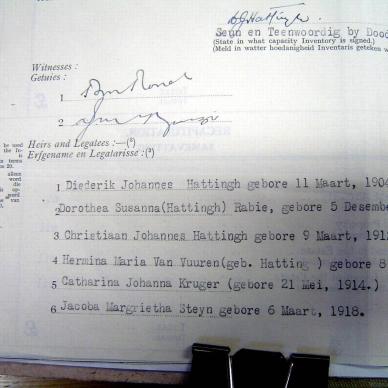 DJ Hattingh.
Seun en Teenwoordig by Dood
(State in what capacity Inventory is signed.)
(Meld in watter hoedanigheid Inventaris geteken w
Witnesses :
Getuies :
1
2
Heirs and Legatees :—(²)
Erfgename en Legatarisse :(²)
1 Diederik Johannes Hattingh gebore 11 Maart, 1904
2 Dorothea Susanna(Hattingh) Rabie, gebore 5 Desembe
3 Christiaan Johannes Hattingh gebore 9 Maart, 191
4 Hermina Maria Van Vuuren(geb. Hatting ) gebore 8
5 Catharina Johanna Kruger (gebore 21 Mei, 1914.)
6 Jacoba Margrietha Steyn gebore 6 Maart, 1918.